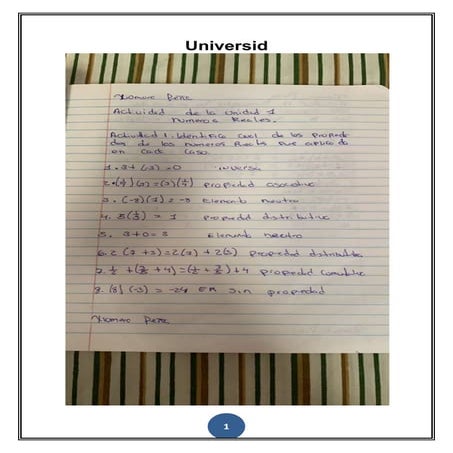 Universid
Xiomara Perez
Actividad de la unidad 1
Numeros Reales.
Actividad 1: Identifica cual de las propieda
des de los numeros Reales fue aplicada
en cada caso.
1. 3+(-3)=0 inversa
2. (1/7)(7)=(7)(1/7) propiedad asosiativa
3. (-8)(1)=-8 Elemento neutro
4. 3(1/3)=1 propiedad distributiva
5. 3+0=3 Elemento neutro
6. 2(7+3)=2(7)+2(3) propiedad distributiva
propiedad Conmutativa
8. (8)(-3)=-24 Es sin propiedad
Xiomara Perez
1